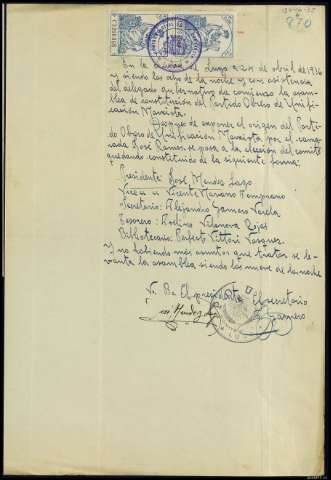 870
En la ciudad de Lugo a 24 de abril de 1936
y siendo las ocho de la noche y con asistencia
del delegado gubernativo da comienzo la asam-
blea de constitución del Partido Obrero de Unifi-
cación Marxista.
Después de exponer el origen del Partido
Obrero de Unificación Marxista por el cama-
rada José Ramos se pasa a la elección del comité
quedando constituido de la siguiente forma:
Presidente: José Mendez Lago
Vice Vicente Mariano Temprano
Secretario: Alejandro Gamero Varela
Tesorero: Vilanova Rojas
Bibliotecario: Perfecto Vittori Vasquez.
Y no habiendo más asuntos que tratar se le-
vanta la asamblea siendo las nueve de la noche
V. B. El presidente El secretario
José Mendez A. Gamero